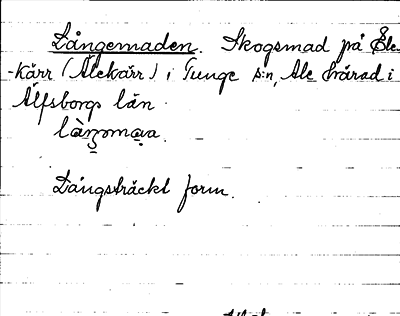 Långemaden. Skogsmad på Äle-
-kärr (Älekärr) i Tunge sn, Ale härad i
Älfsborgs län.
Långsträckt form.